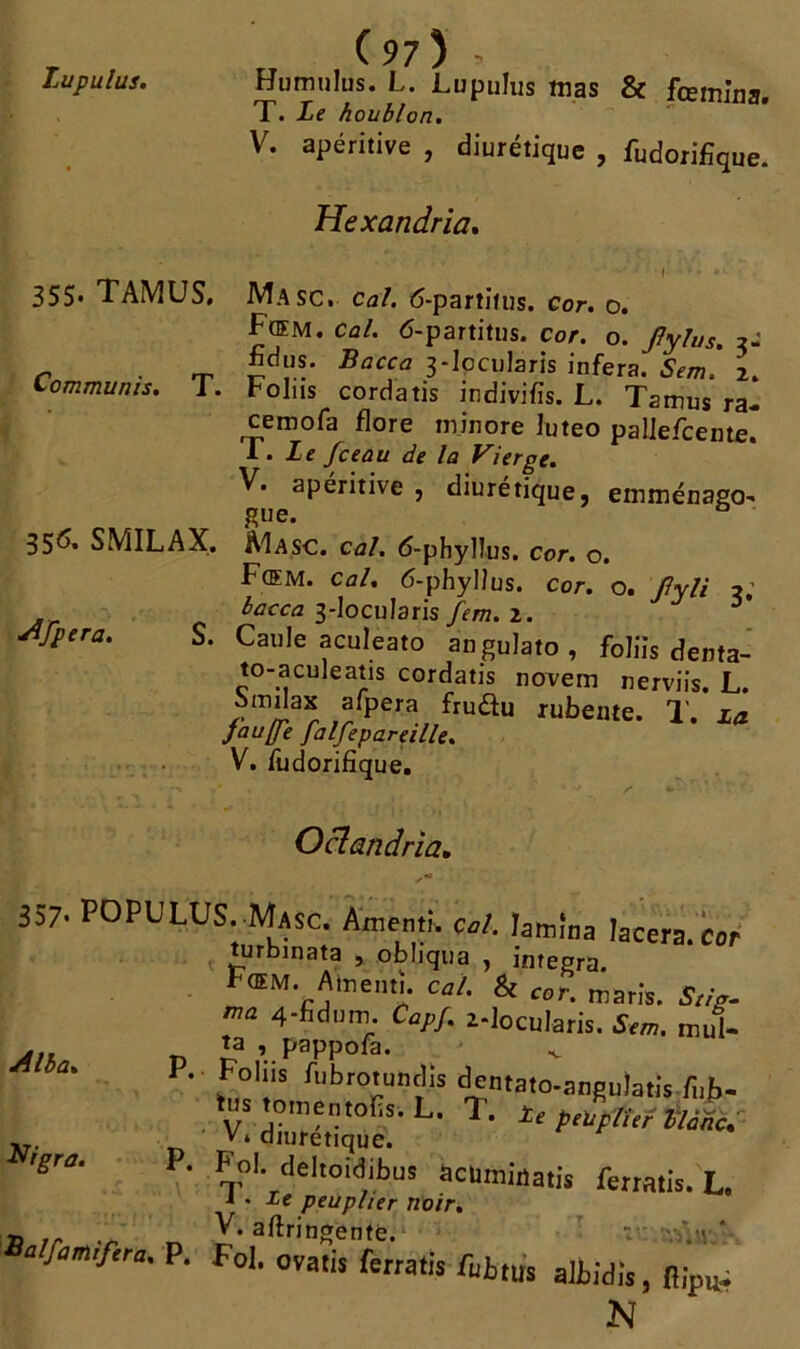 (97)
Lupulus. Humulus. L. Lupulus mas & fœmina.
T. Le houblon.
V. apéritive , diurétique , ſudorifique.
Hexandria.
355. TAMUS. MASC. cal. 6-partitus. cor. o.
FŒM. cal. 6-partitus. cor. o. ſtylus. 3-
fidus. Bacca 3-locularis infera. Sem. 2.
Communis. T. Foliis cordatis indiviſis. L. Tamus ra-
cemoſa flore minore luteo palleſcente.
T. Le ſceau de la Vierge.
V. apéritive , diurétique, emménago-
gue.
356. SMILAX. MASC. cal. 6-phyllus. cor. o.
FŒM. cal. 6-phyllus. cor. o. ſtyli 3.
bacca 3-locularis ſem. 2.
Aſpera. S. Caule aculeato angulato , foliis denta-
to-aculeatis cordatis novem nerviis. L.
Smilax aſpera fructu rubente. T. La
fauſſe ſalſepareille.
V. ſudorifique.
Octandria.
357. POPULUS. MASC. Amenti. cal. lamina lacera. cor
turbinata , obliqua , integra.
FŒM. Amenti. cal. & cor. maris. Stig-
ma 4-fidum. Capſ. 2-locularis. Sem. mul-
ta , pappoſa.
Alba. P. Foliis ſubrotundis dentato-angulatis ſub-
tus tomentoſis. L. T. Le peuplier blanc.
V. diurétique.
Nigra. P. Fol. deltoidibus acuminatis ſerratis. L.
T. Le peuplier noir.
V. aſtringente.
Balſamifera. P. Fol. ovatis ſerratis ſubtus albidis, ſtipu-
N